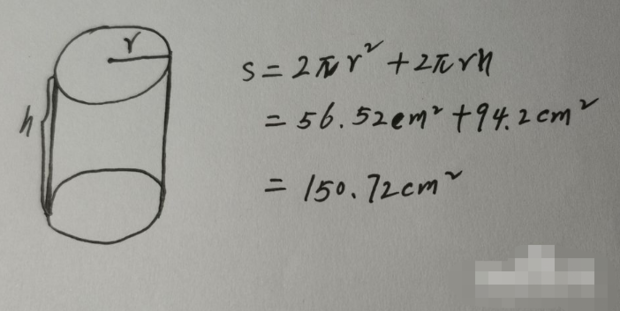 r
h
S=2πr²+2πrh
=56.52cm²+94.2cm²
=150.72cm²